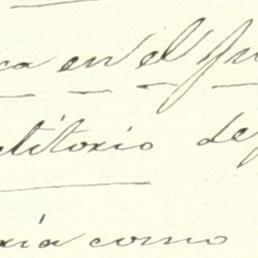 ca en el Ju
etitorio de
ría como